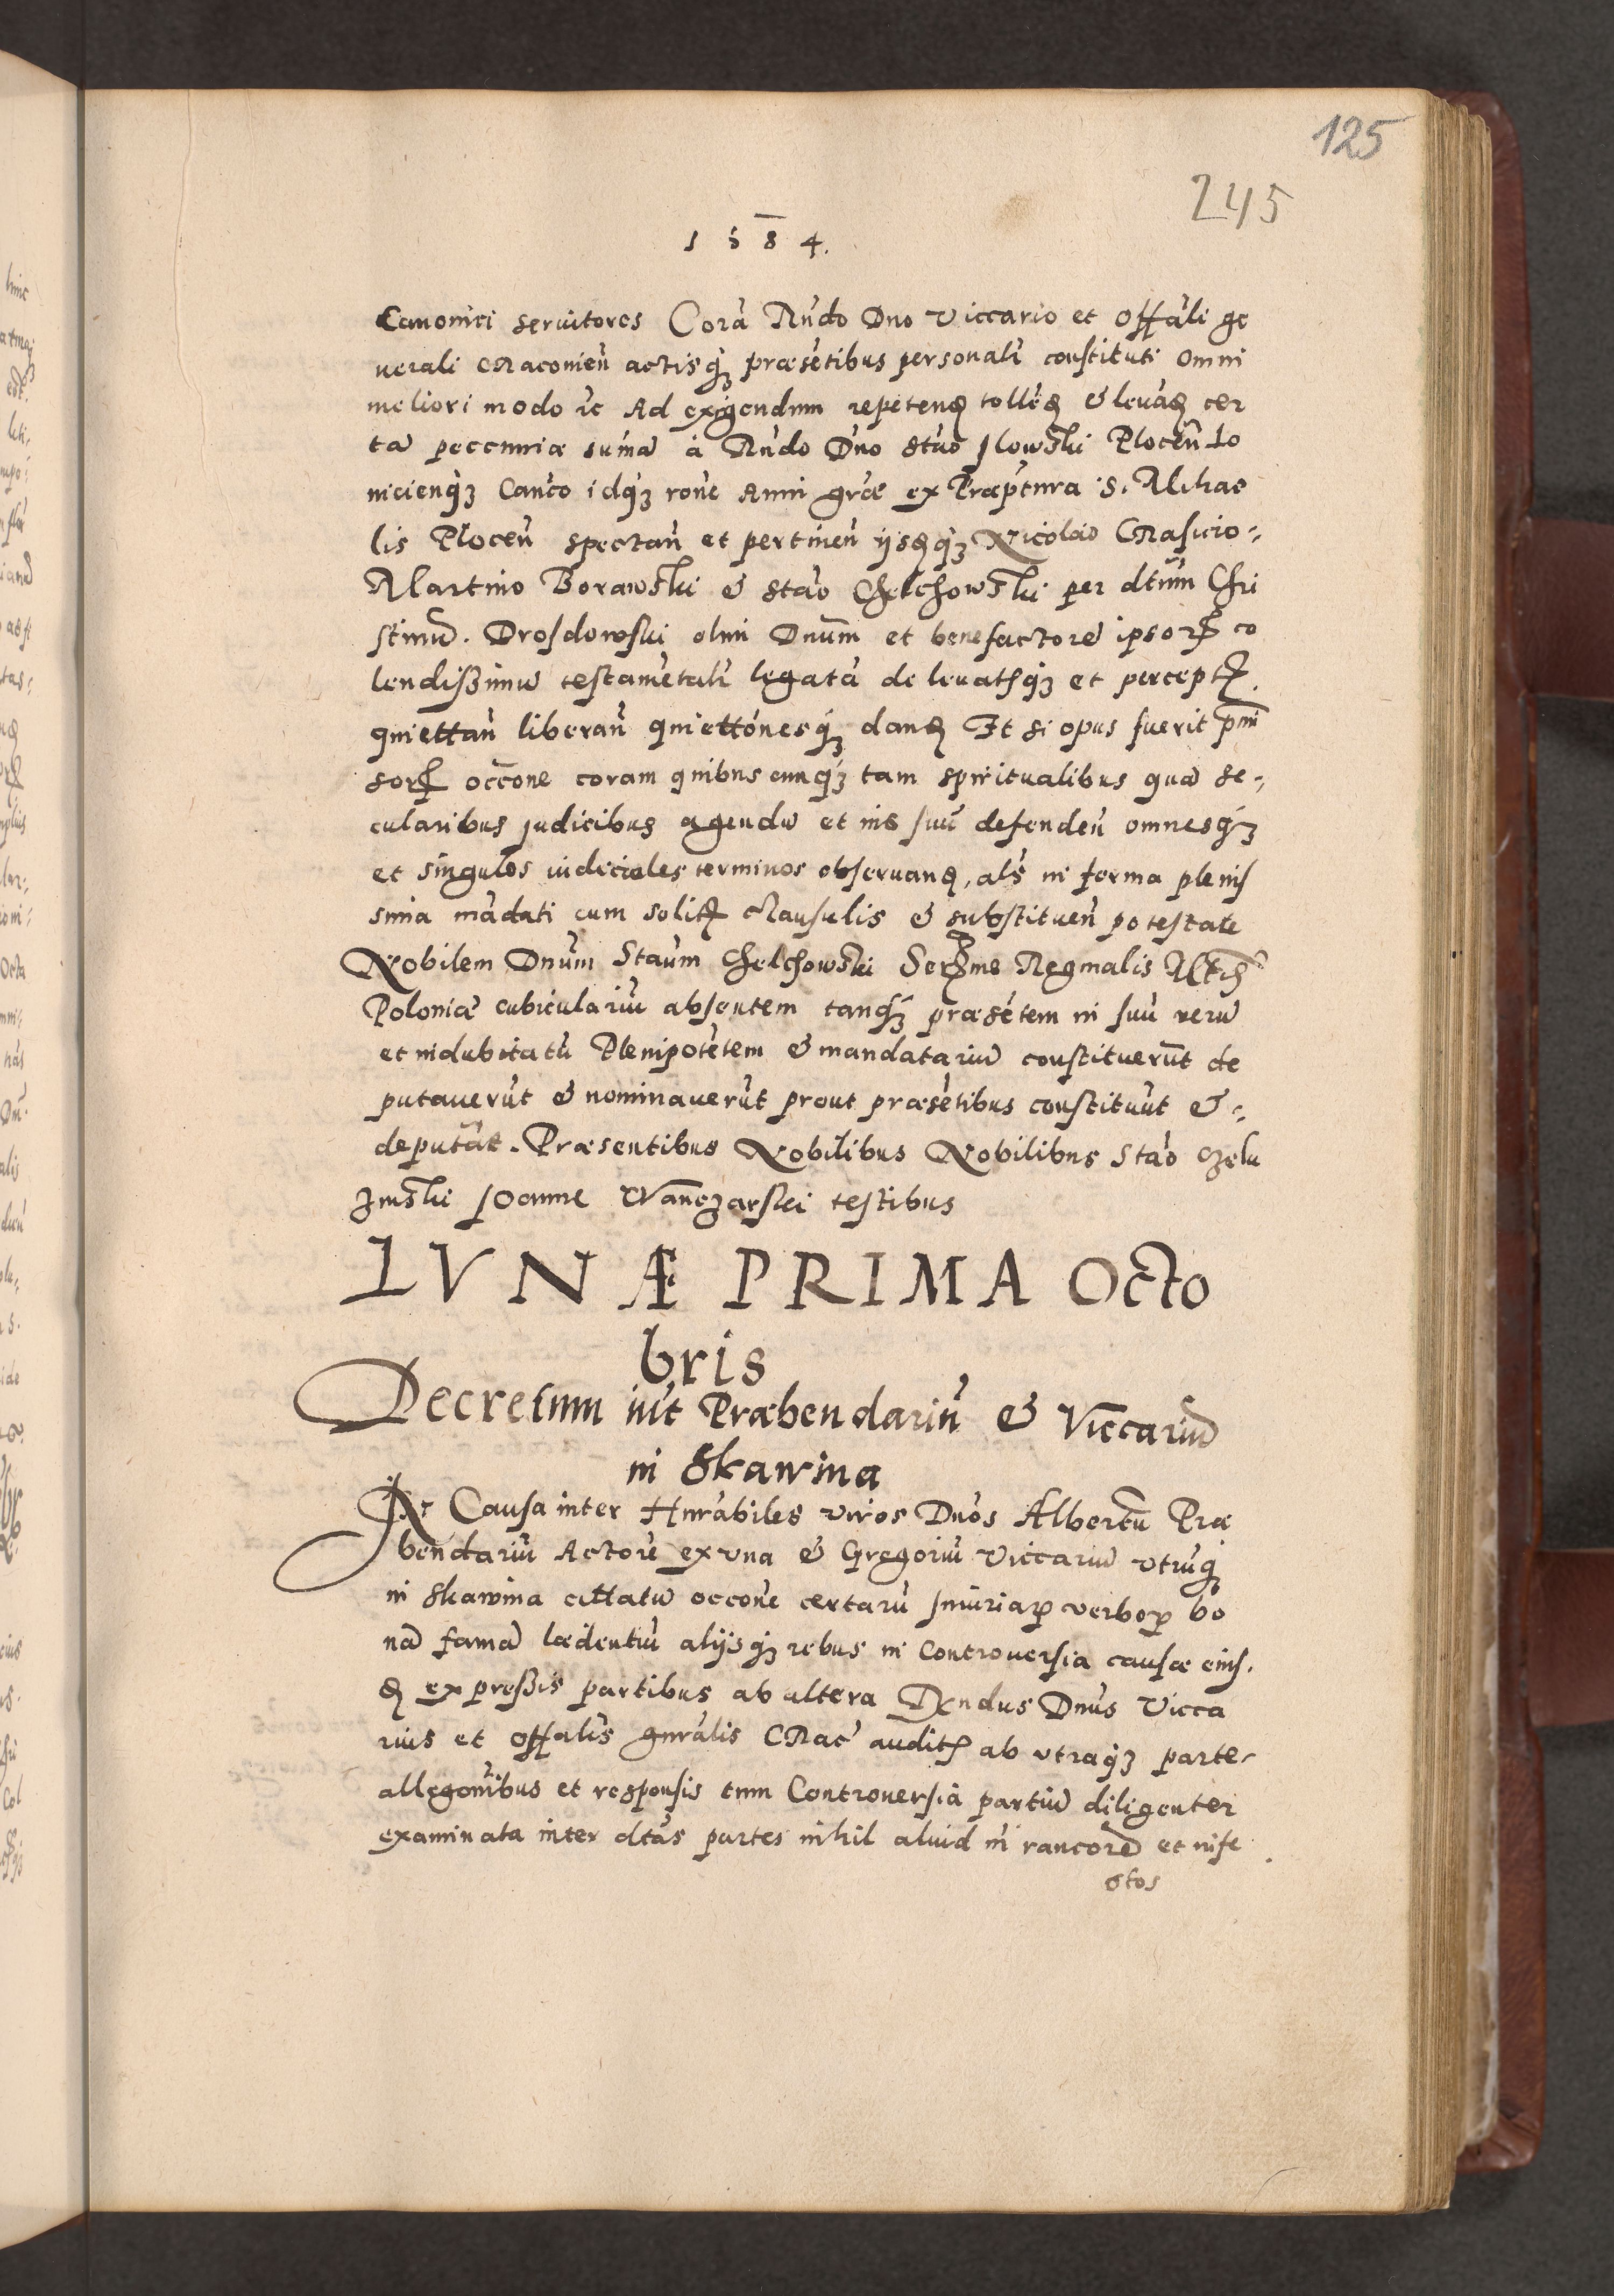 125
245
1584.
Canonici servitores Corā Rndo Dno Viccario et Offāli ge
nerali Cracovien̄ actisq̨ȝ præsētibus personalr̄ constituti omni
meliori modo rc Ad exigendum repetenđ tollēđ & levāđ cer
tā peccuniæ sum̄ā à Rndo Dno Stāo Ilowski Plocen̄ Lo
nicienq̨ȝ Canco idq̨ȝ rōne Anni græ ex Præptura S. Micha
lis Plocen̄ spectan̄ et pertinen̄ ijsđq̨ȝ Nicolao Crasicio-
Martino Borawski & Stāo Chelchowski per dtūm Chri
stinū. Drosdowski olim Dnūm et benefactorē ipsorꝝ co
lendißimū testamētalr̄ legatā de levatisq̨ȝ et perceptꝭ.
quiettan̄ liberan̄ quiettōnesq̨ȝ danđ Et si opus fuerit pm̄i
sorꝝ occōne coram quibuscunq̨ȝ tam spiritualibus quā se-
cularibus judicibus agendū et ius suū defenden̄ omnesq̨ȝ
et singulos iudiciales terminos observanđ, als̄ in forma plenis
sima mādati cum solitꝭ clausulis & substituen̄ potestate
Nobilem Dnūm Stāum Chelchowski Serꝝme Reginalis Mttis
Poloniæ cubiculariū absentem tanq̨ȝ præsētem in suū verū
et indubitatū Plenipotētem & mandatariū constituerūt de
putaverūt & nominaverūt prout præsētibus constituūt &-
deputāt. Præsentibus Nobilibus Nobilibus Stāo Czelu
zinski Joanne Wanczarski testibus
LVNÆ PRIMA Octo
bris
Decretum int̄ Præbendariū & Viccariū
in Skawina
In Causa inter Hnrābiles viros Dnōs Albertū Præ
bendariū Actorē ex una & Gregoriū Viccariū utrūq̨
in Skawina cittatū occōne certarū Iniuriaꝝ verboꝝ bo
nā famā lædentiū alijsq̨ȝ rebus in Controversia causæ eius.
đ expreßis partibus ab altera Rndus Dnūs Vicca
rius et Offalīs gnrālis Crac̄ auditꝭ ab utraq̨ȝ parte-
allegōnibus et responsis tum Controversiā partiū diligenter
examinata inter dtās partes nihil aliud n̄i rancorē et infe
stos